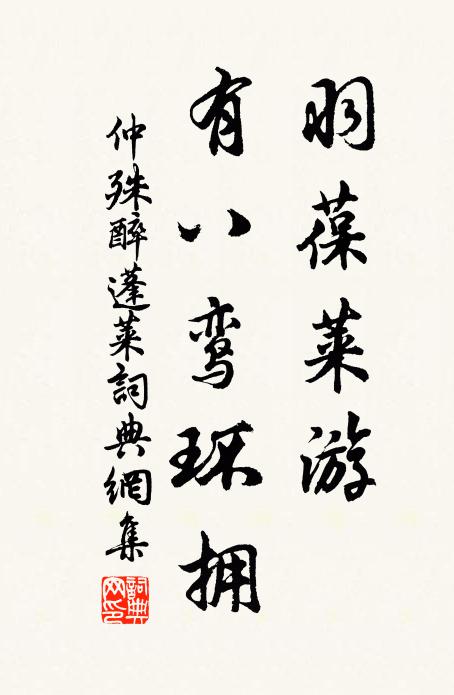 羽葆莱游
有八鸾环拥
仲殊醉蓬莱詞典網集
詞典
网印